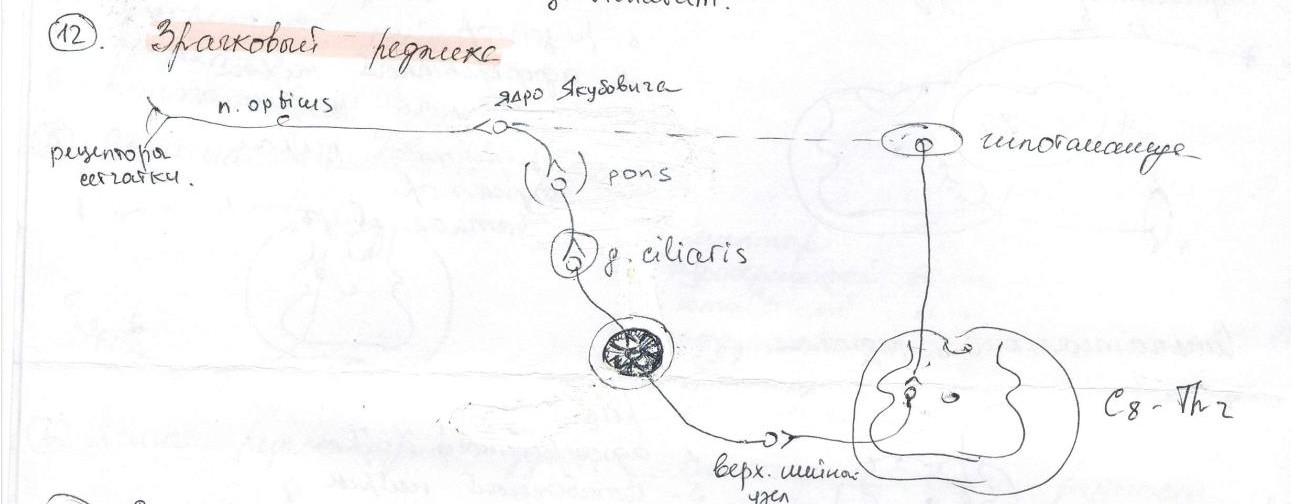 12. Зрачковый рефлекс
n. opticus
ядро Якубовича
рецепторы
сетчатки.
гипоталамус
pons
g. ciliaris
C8 - Th2
верх. шейн.
узел